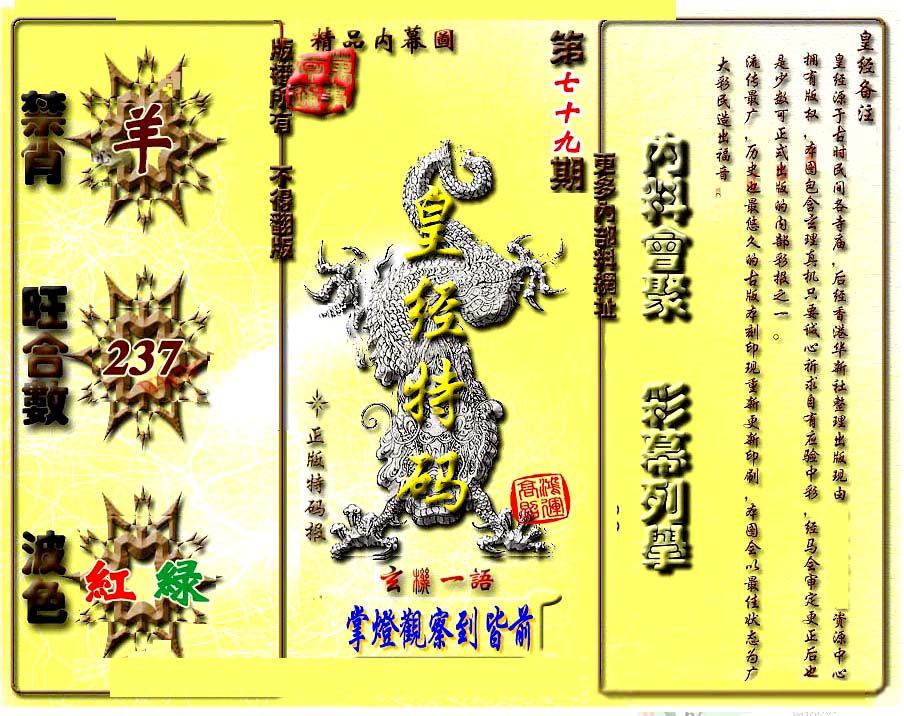 精品内幕圖
第七十九期
版權所有 不得翻版
更多內部料網址
禁肖
羊
旺合數
237
波色
紅 綠
皇经特码
正版特码报
鸿運高照
玄機一語
掌燈觀察到皆前
內料會聚 彩幕列舉
皇经备注
皇经源于古时民间各寺庙,后经香港华新社整理出版现由 资源中心
拥有版权,本图包含玄理真机只要诚心祈求自有应验中彩,经马会审定更正后也
是少数可正式出版的内部彩报之一。
流传最广,历史也最悠久的古版本刻印现重新更新印刷,本图会以最佳状态为广
大彩民造出福音